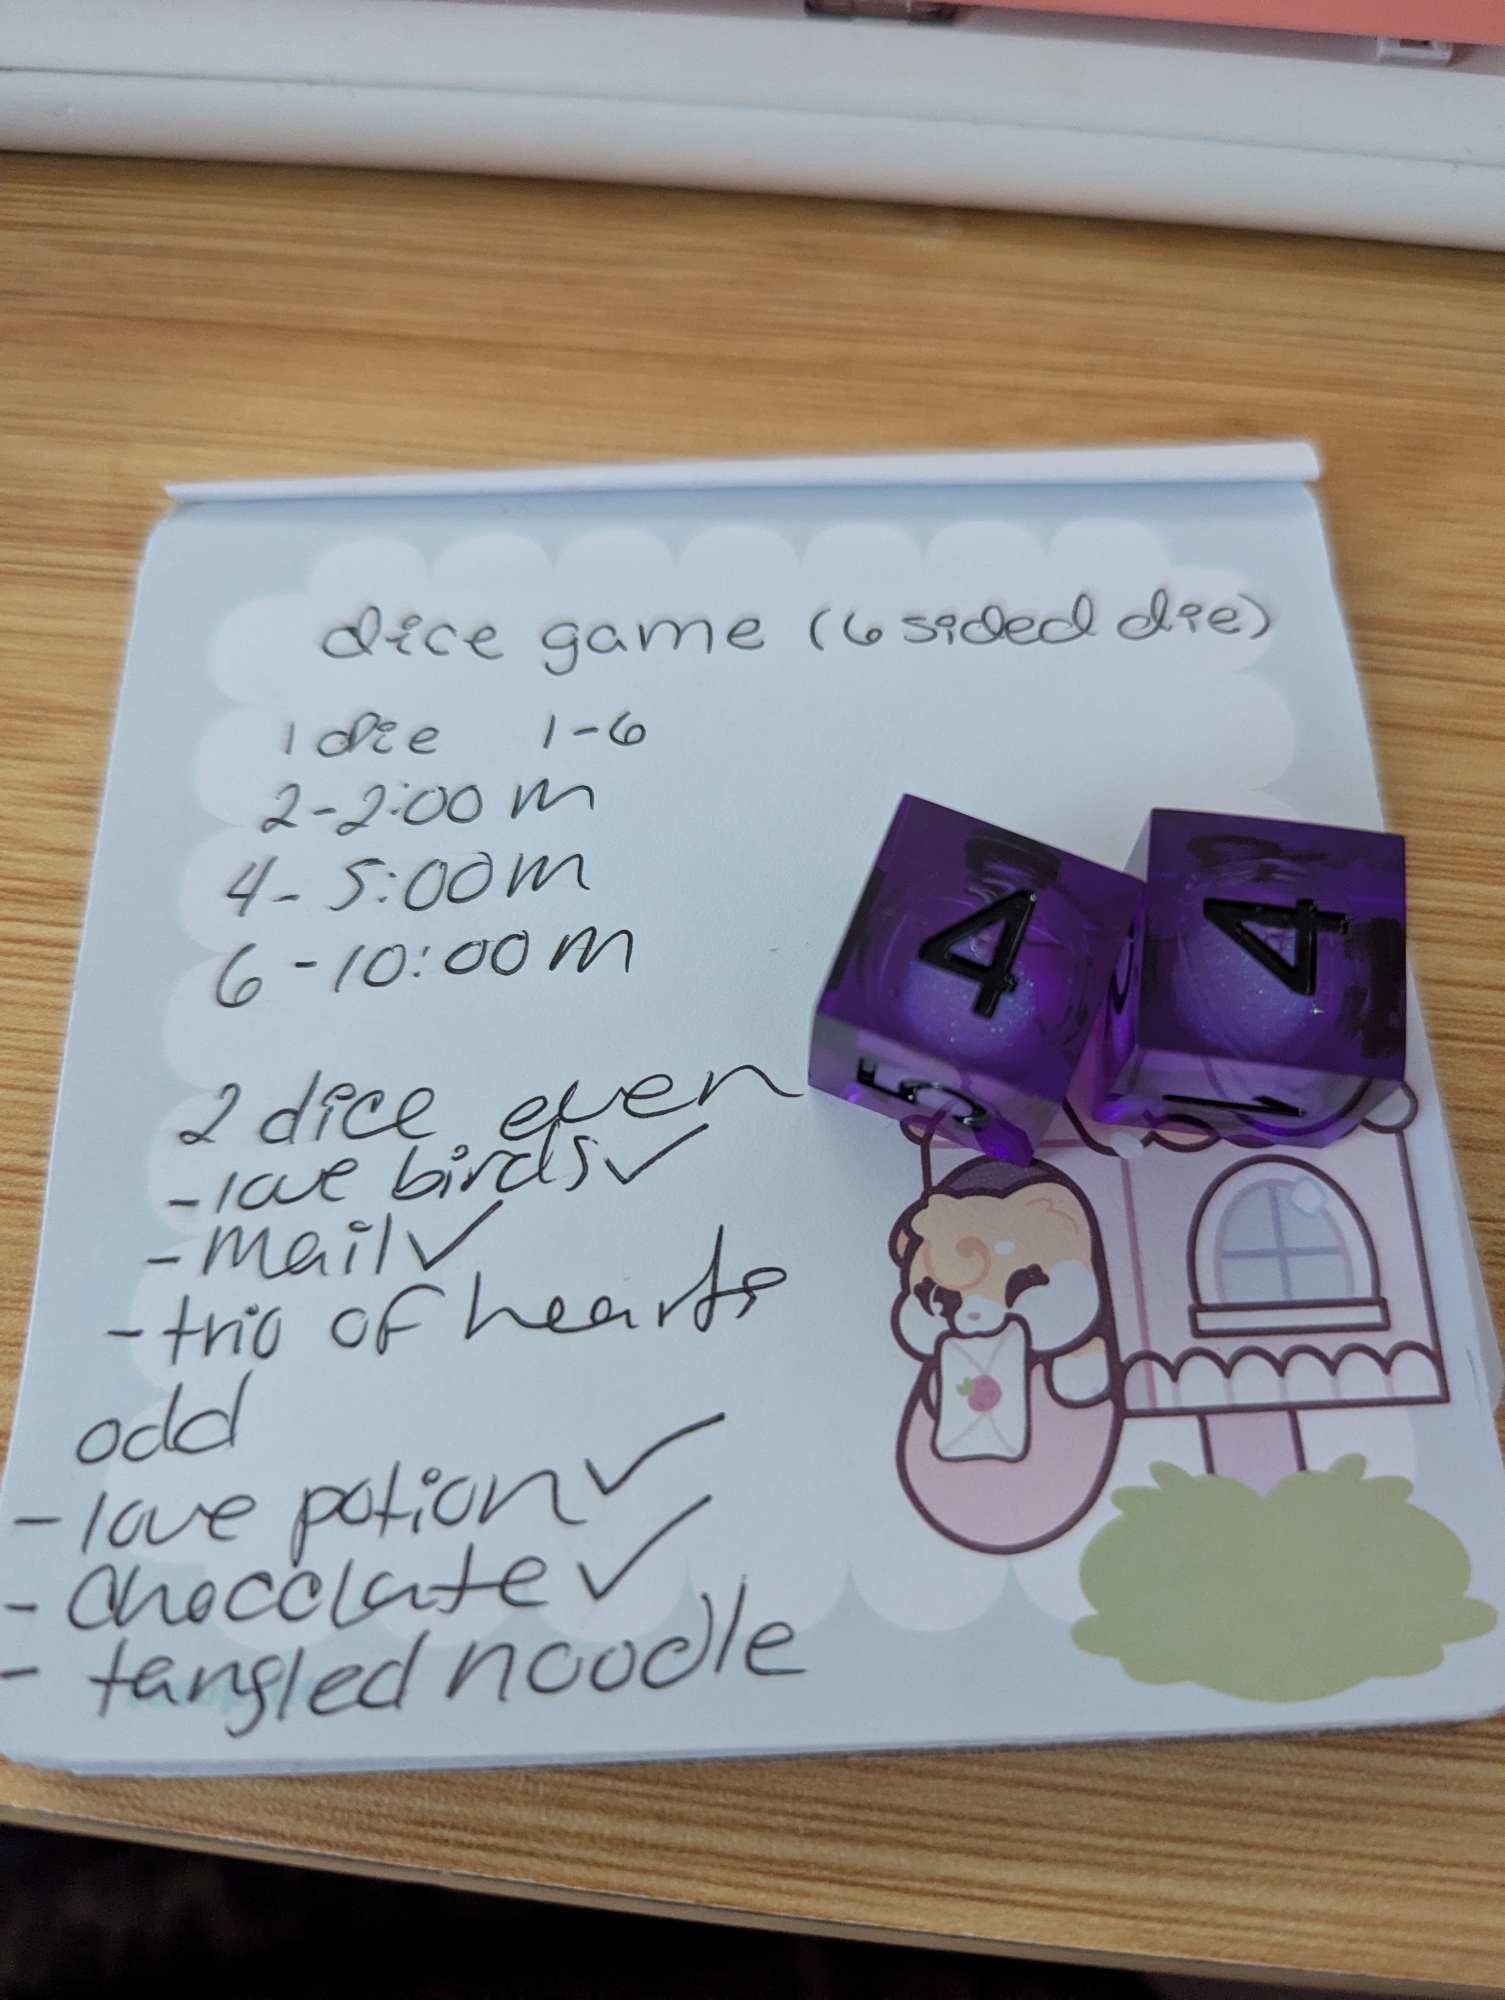 dice game (6 sided die)
1 die 1-6
2-2:00 m
4- 5:00 m
6-10:00 m
4
4
5
1
2 dice even
- love birds ✓
- mail ✓
- trio of hearts
odd
- love potion ✓
- chocolate ✓
- tangled noodle